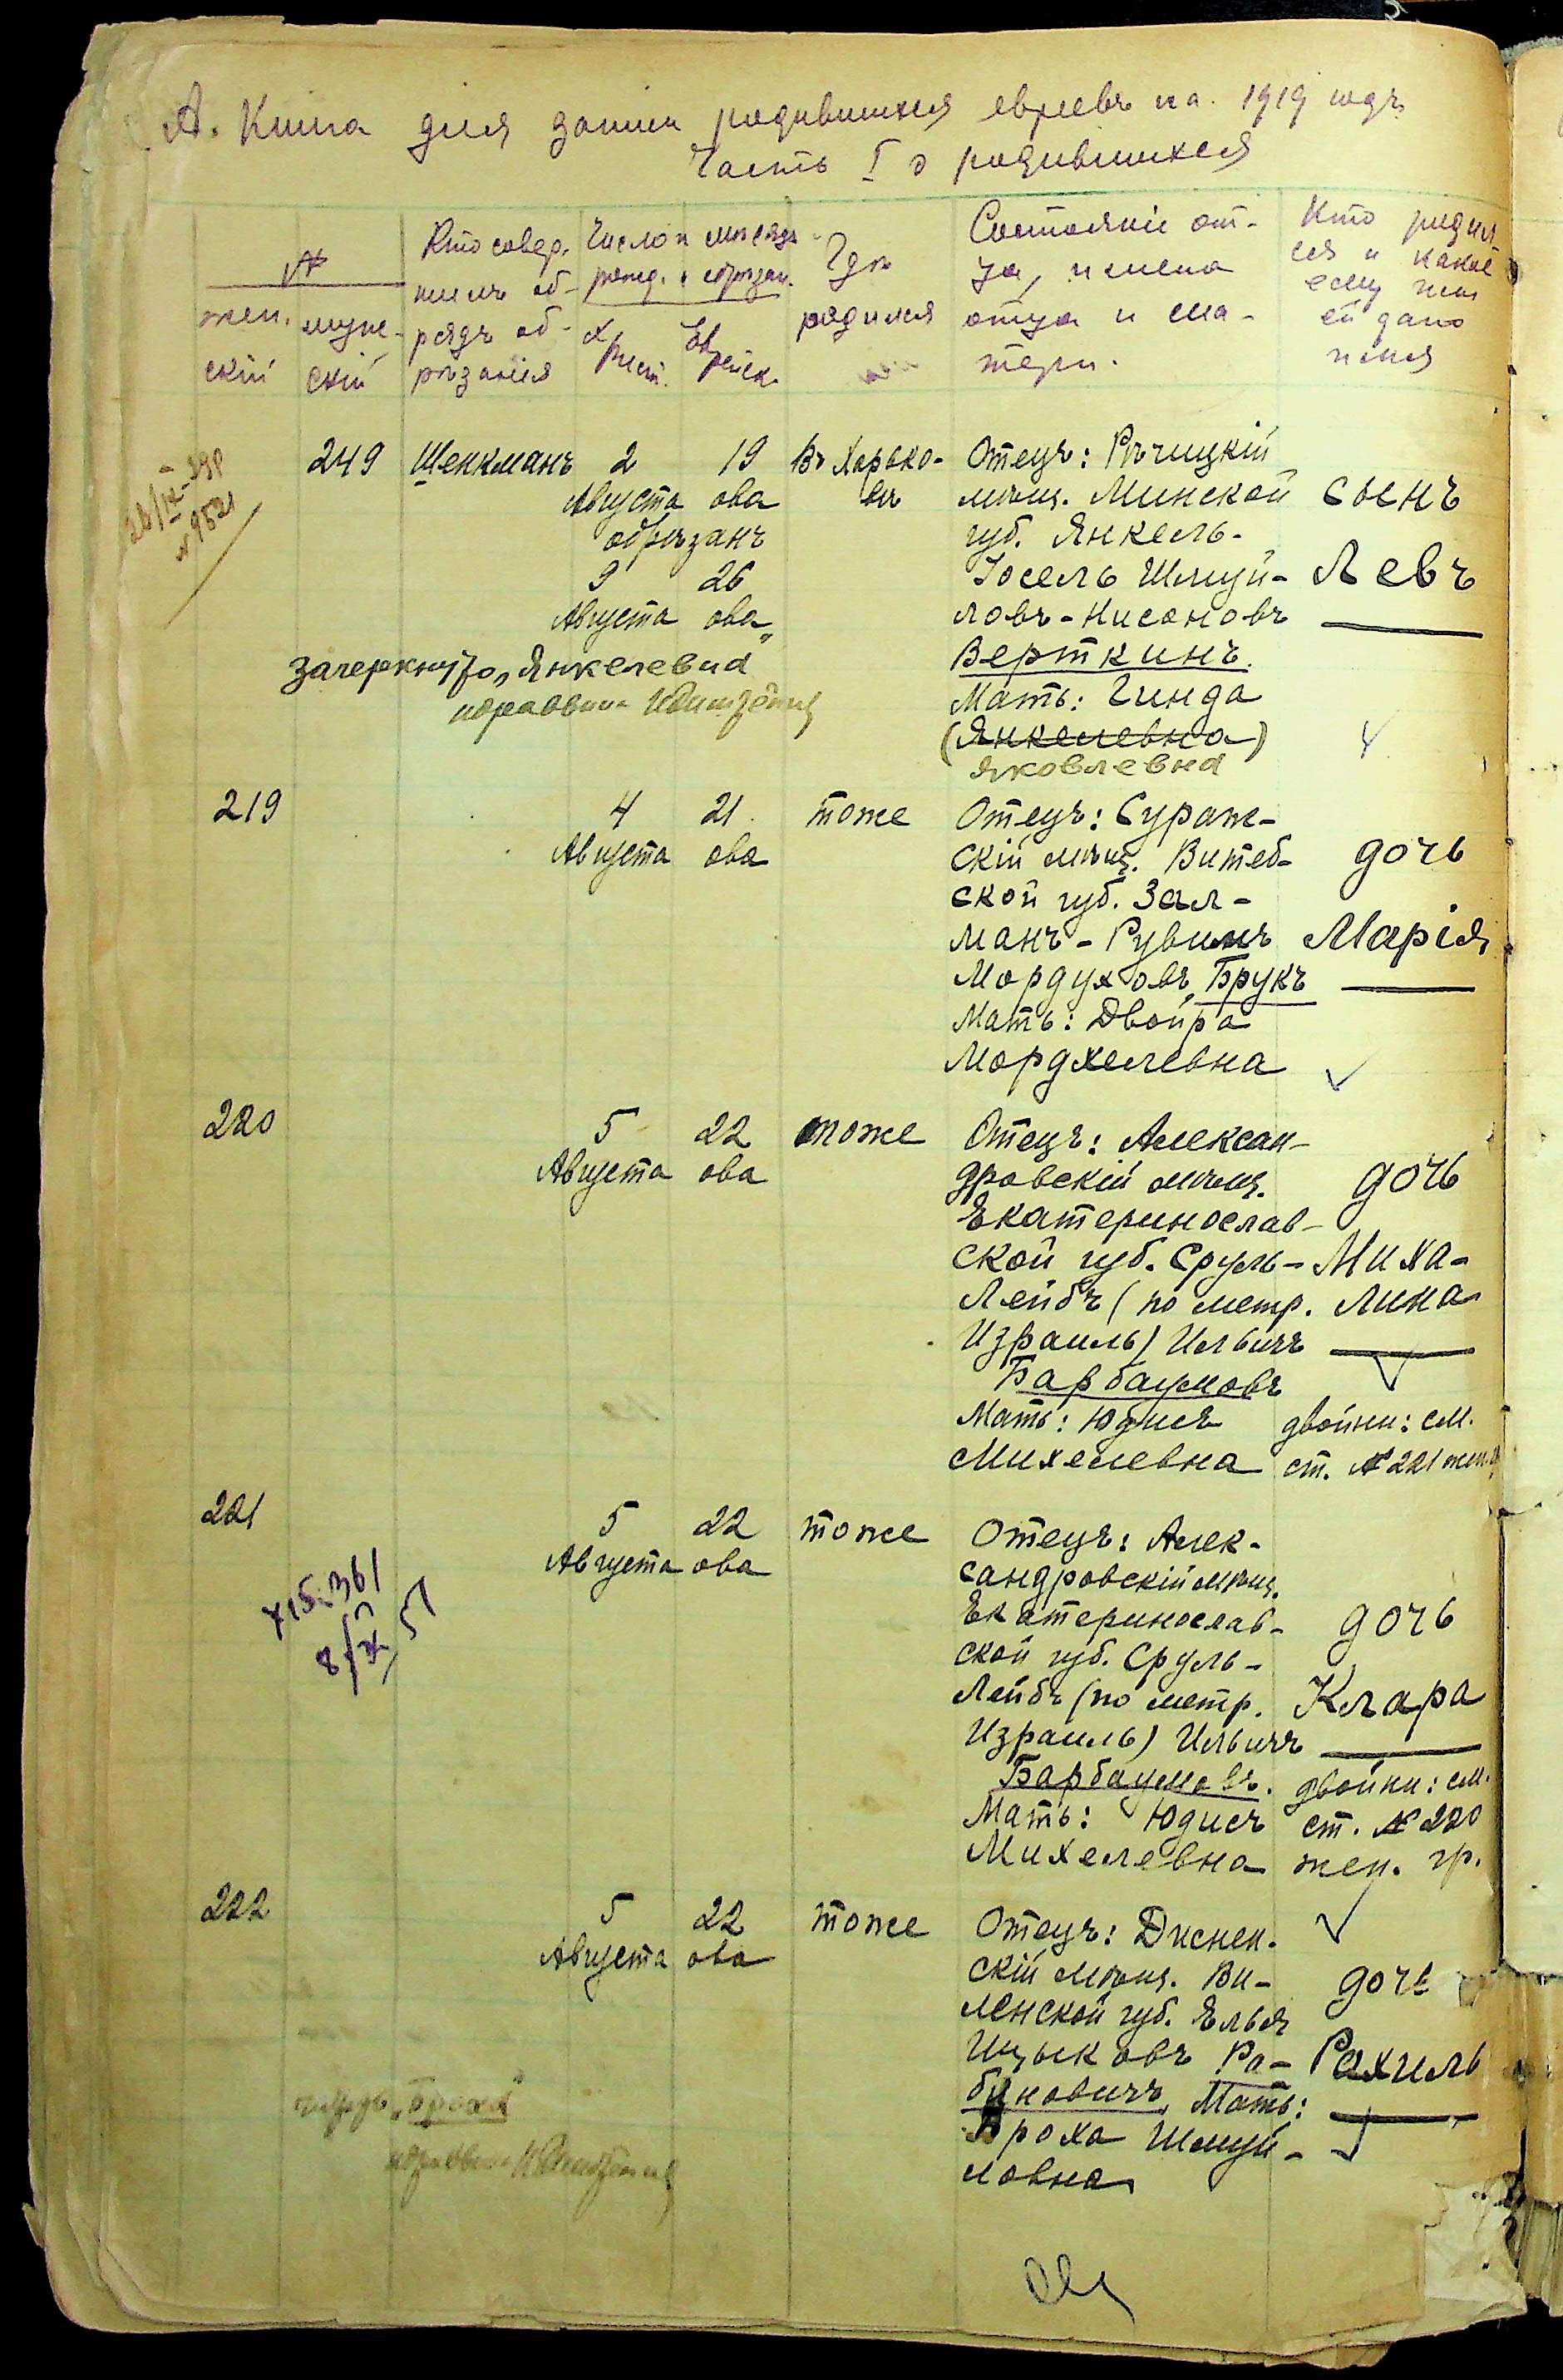 А. Книга для записи родившихся евреевъ на 1919 годъ
Часть I о родившихся
№
жен.
скій
муже-
скій
Кто совер.
шилъ об-
рядъ об-
рѣзанія
Число и мѣсяцъ
рожд. и обрѣзан.
Христ.
Еврейск.
Гдѣ
родился
Состояніе от-
ца, имена
отца и ма-
тери.
Кто родил
ся и какое
ему или
ей дано
имя
249 Шенкманъ 2 19 Въ Харько-
вѣ
Августа ова
обрѣзанъ
9 26
Августа ова
Отецъ: Рѣчицкій
мѣщ. Минской
губ. Янкель-
Іосель Шмуй-
ловъ-Нисоновъ
Верткинъ.
Мать: Гинда
(Янкелевна)
Яковлевна
сынъ
Левъ
зачеркнуто „Янкелевна"
219 4 21 тоже
Августа ова
Отецъ: Сураж-
скій мѣщ. Витеб-
ской губ. Зал-
манъ-Рувимъ
Мордуховъ Брукъ
Мать: Двойра
Мордхелевна
дочь
Марія
220 5 22 тоже
Августа ова
Отецъ: Алексан-
дровскій мѣщ.
Екатеринослав-
ской губ. Сруль-
Лейбъ (по метр.
Израиль) Ильичъ
Барбаумовъ
Мать: Юдисъ
Михелевна
дочь
Миха-
лина
двойни: см.
ст. № 221 жен.
221 5 22 тоже
Августа ова
Отецъ: Алек-
сандровскій мѣщ.
Екатеринослав-
ской губ. Сруль-
Лейбъ (по метр.
Израиль) Ильичъ
Барбаумовъ.
Мать: Юдисъ
Михелевна
дочь
Клара
двойни: см.
ст. № 220
жен. гр.
222 5 22 тоже
Августа ова
Отецъ: Диснен-
скій мѣщ. Ви-
ленской губ. Елья
Ицыковъ Ра-
биновичъ Мать:
Броха Шмуй-
ловна
дочь
Рахиль